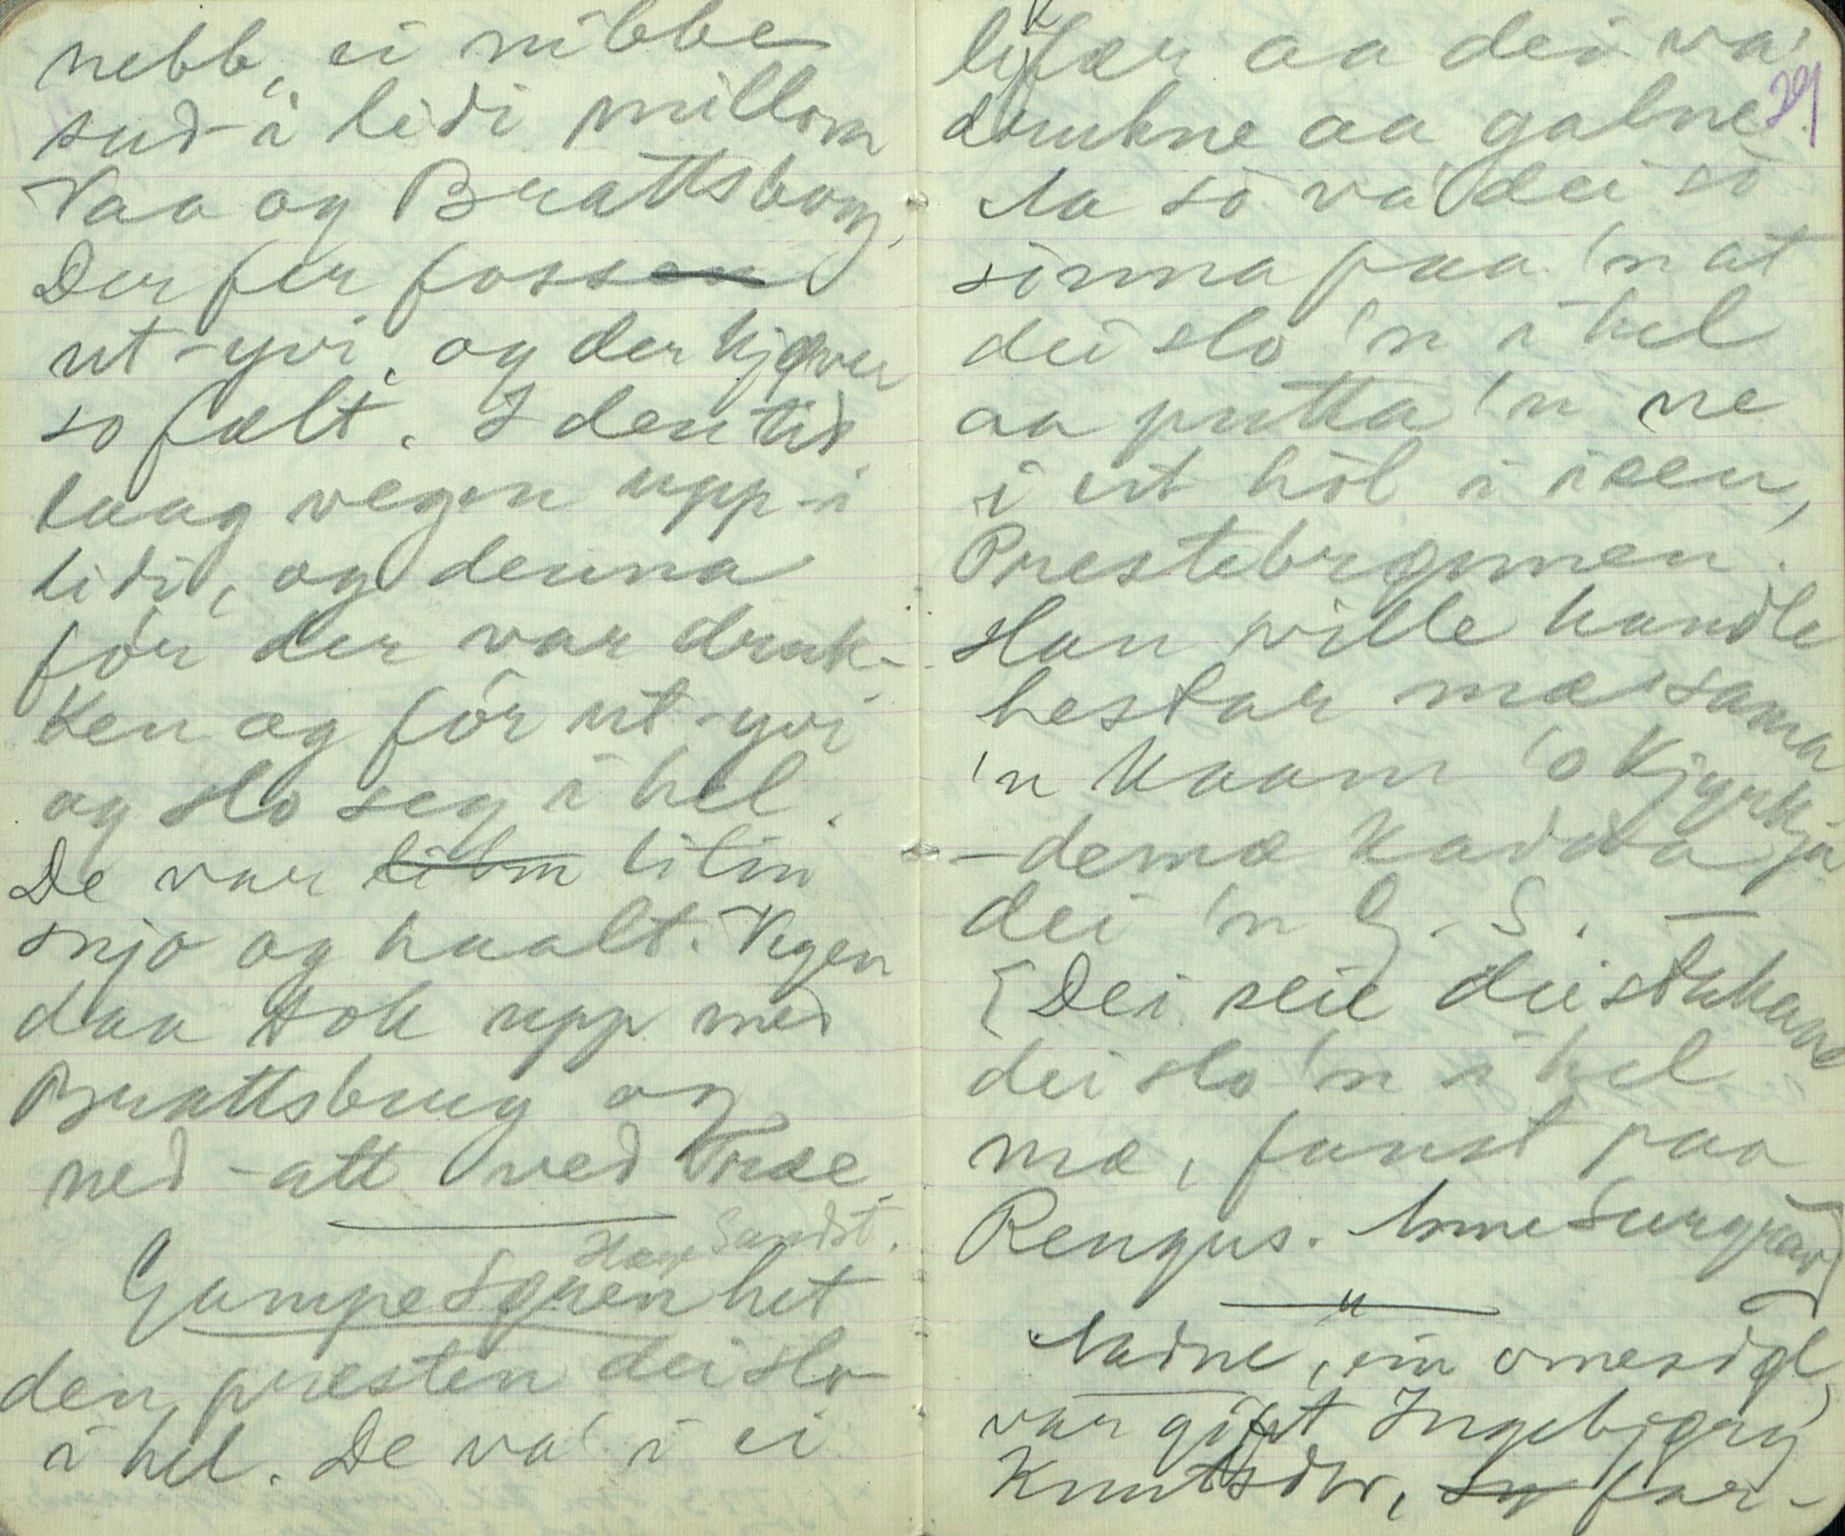 nebb, ei nibbe
sud-i lidi millom
Vaa og Brattsborg.
Der fer fossen
ut-yvi, og der kjøver
so fælt. I den tid
laag vegen upp-i
lidi, og denna
fór der var druk-
ken og fór ut-yvi
og slo seg i hel.
De var litin
snjo og haalt. Vegen
daa tok upp med
Brattsberg og
ned-att ved Træe.
Hans Sandst.
Gampe Søren het
den presten dei slo
i hel. De va' i ei
likfær aa dei va'
29
drukne aa galne.
Aa so va' dei so
sinna paa 'n at
dei slo 'n i hel
aa putta 'n ne
i eit hòl i isen,
Prestebrunnen.
Han ville handle
hestar mæ sama
'n kaam 'o kjyrkja
– demæ kadda
dei 'n G. S. –
[Dei seie dei stakane
dei slo 'n i hel
mæ, fanst paa
Rengus. Anne Surgrav]
"
Aadne, ein omesidl,
var gift Ingebjørg
Knutsdtr, far-